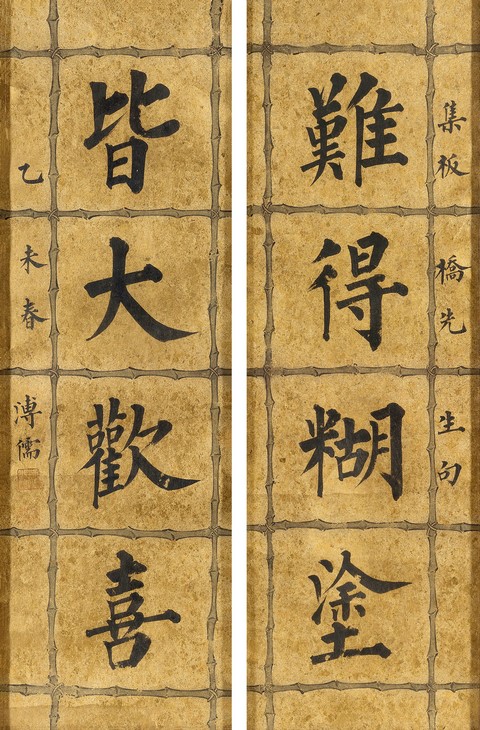 集板橋先生句
難得糊塗
皆大歡喜
乙未春
溥儒